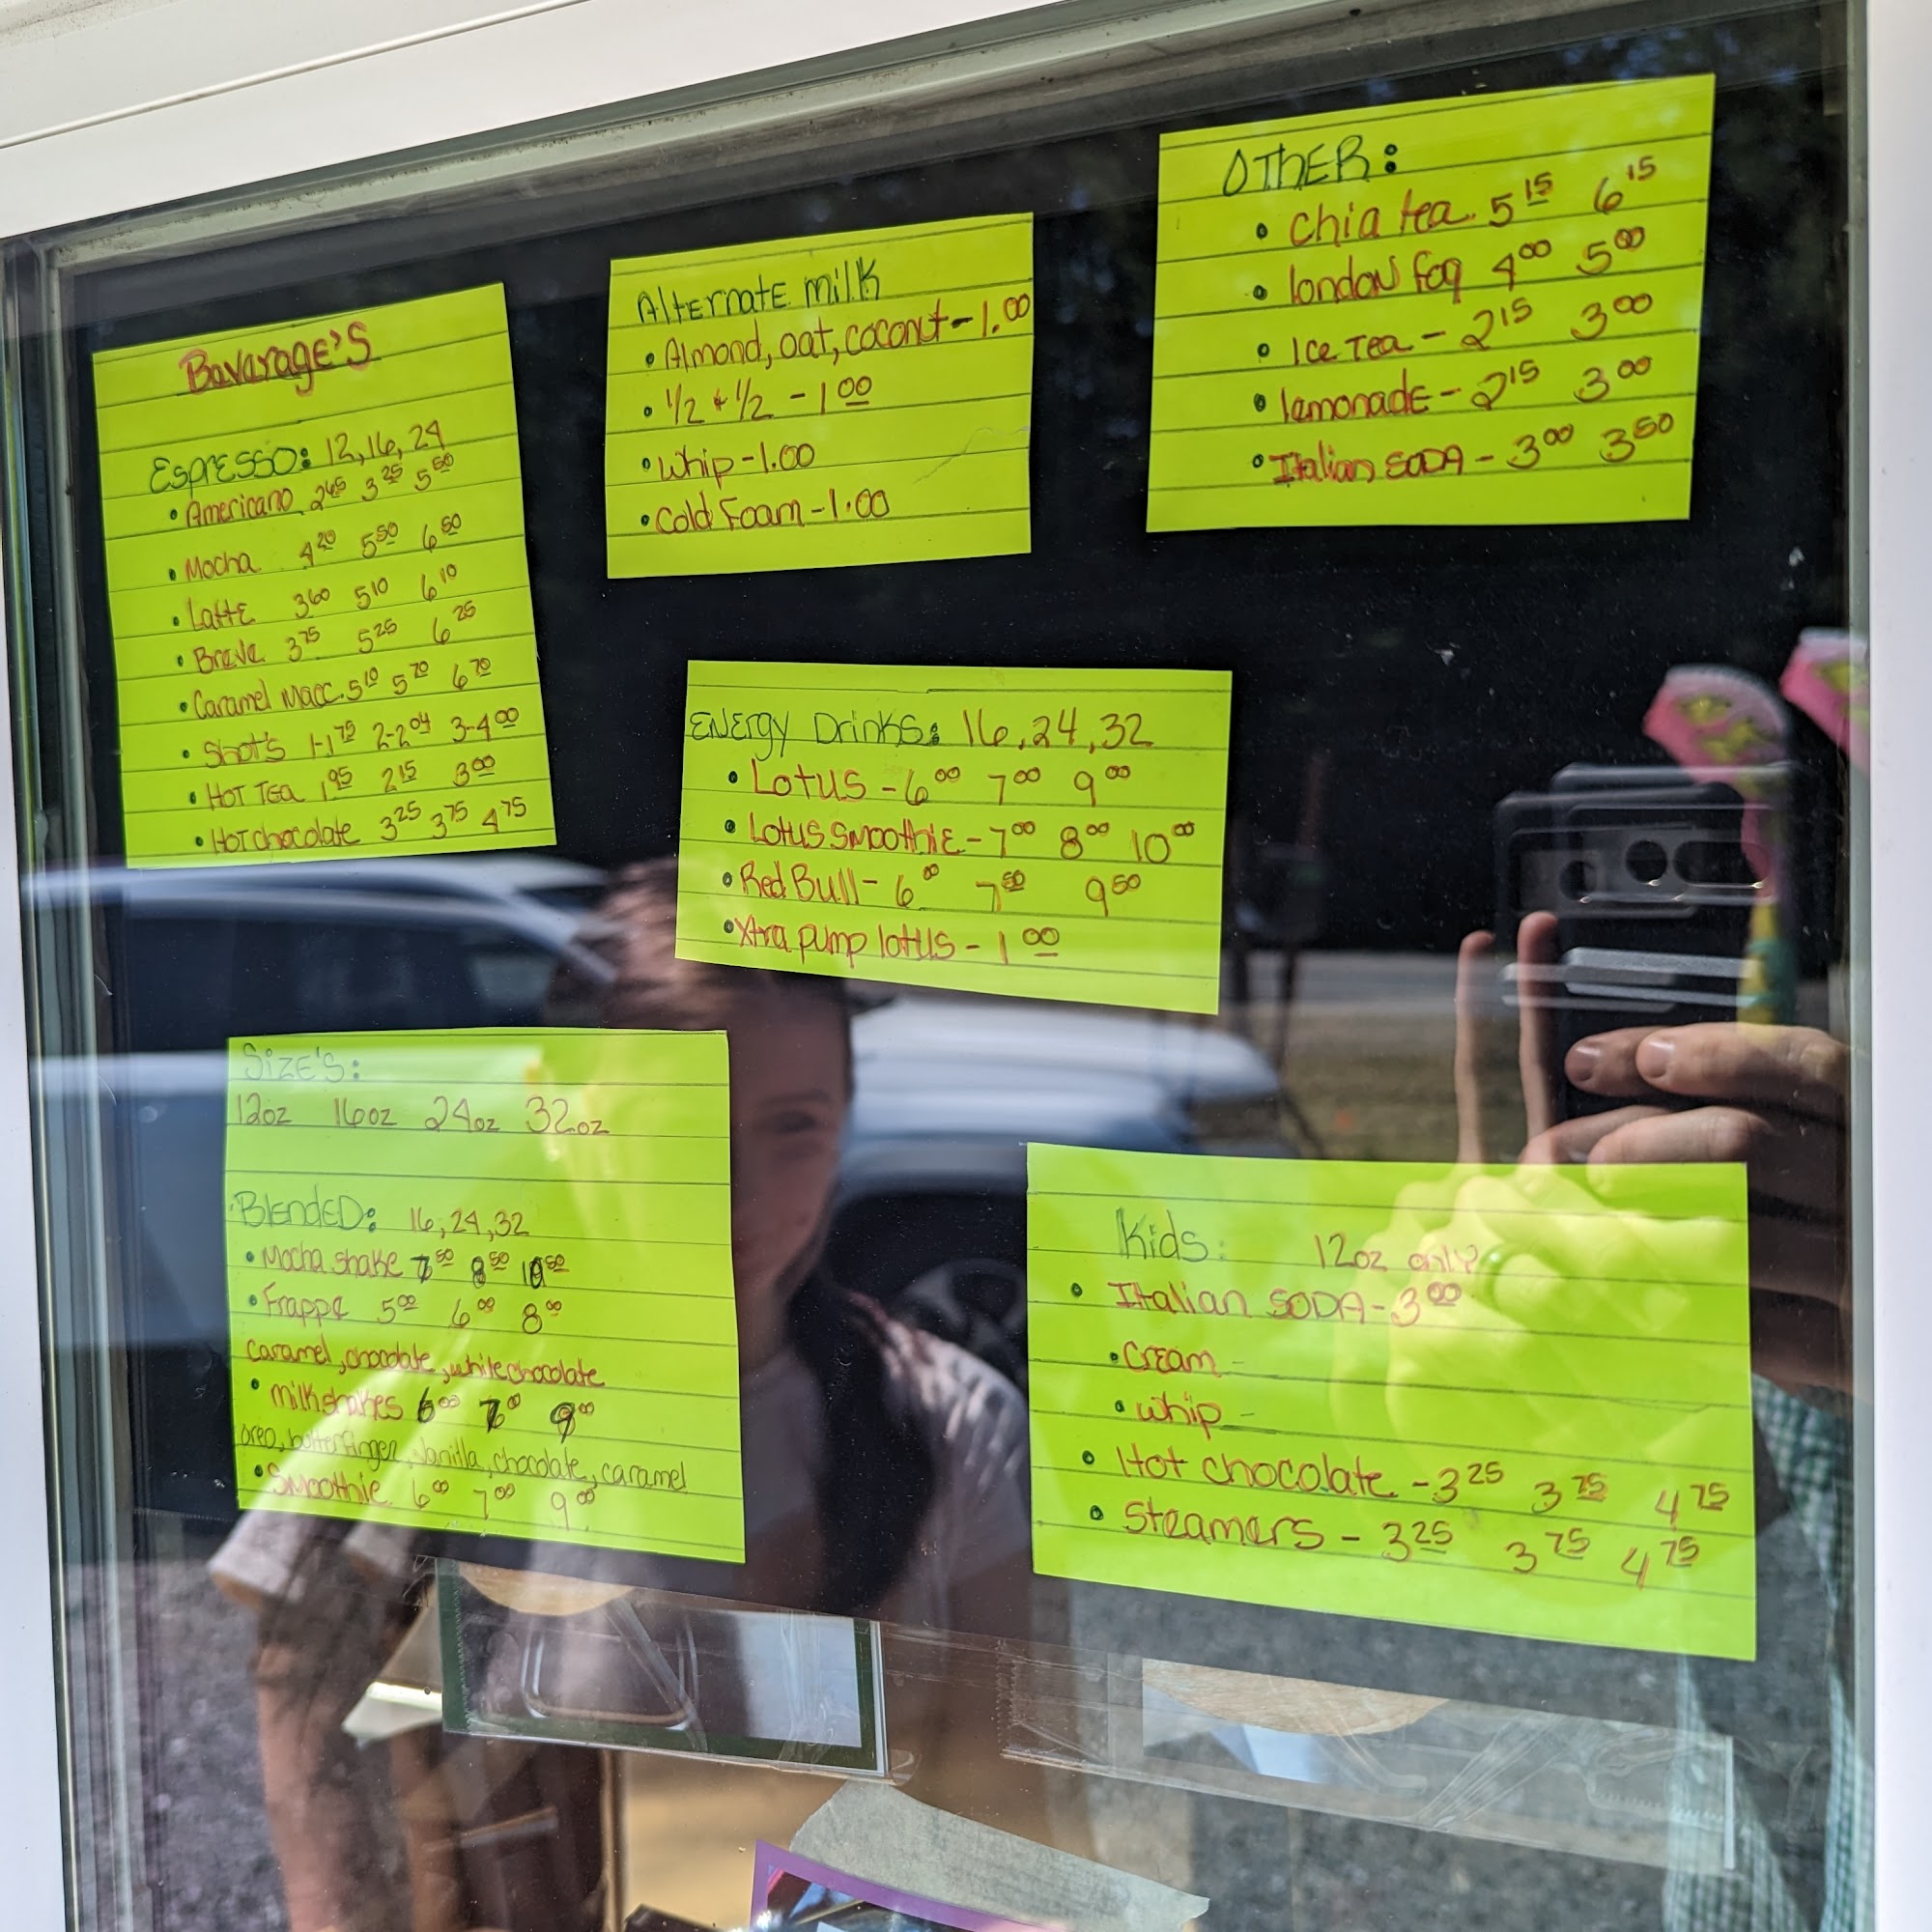 Bavarage's
Espresso: 12, 16, 24
• Americano 245 3 25 5 50
• Mocha 4 20 5 50 6 50
• Latte 3 60 5 10 6 10
• Breve 3 75 5 25 6 25
• Caramel Macc. 5 10 5 70 6 70
• Shot's 1-1 75 2-2 04 3-4 00
• Hot Tea 1 95 2 15 3 00
• Hot chocolate 3 25 3 75 4 75
Alternate milk
• Almond, oat, coconut - 1.00
• 1/2 & 1/2 - 1 00
• Whip - 1.00
• Cold Foam - 1.00
OTHER:
• Chia tea. 5 15 6 15
• london fog 4 00 5 00
• Ice Tea - 2 15 3 00
• lemonade - 2 15 3 00
• Italian SODA - 3 00 3 50
ENERgy DrinKs: 16, 24, 32
• Lotus - 6 00 7 00 9 00
• Lotus Smoothie - 7 00 8 00 10 00
• Red Bull - 6 00 7 50 9 50
• Xtra pump lotus - 1 00
Size's:
12oz 16oz 24oz 32oz
Blended: 16, 24, 32
• Mocha shake 7 50 8 50 10 50
• Frappe 5 00 6 00 8 00
caramel, chocolate, white chocolate
• milkshakes 6 00 7 00 9 00
oreo, butterfinger, vanilla, chocolate, caramel
• Smoothie 6 00 7 00 9 00
Kids: 12oz only
• Italian SODA - 3 00
• Cream -
• whip -
• Hot chocolate - 3 25 3 75 4 75
• Steamers - 3 25 3 75 4 75